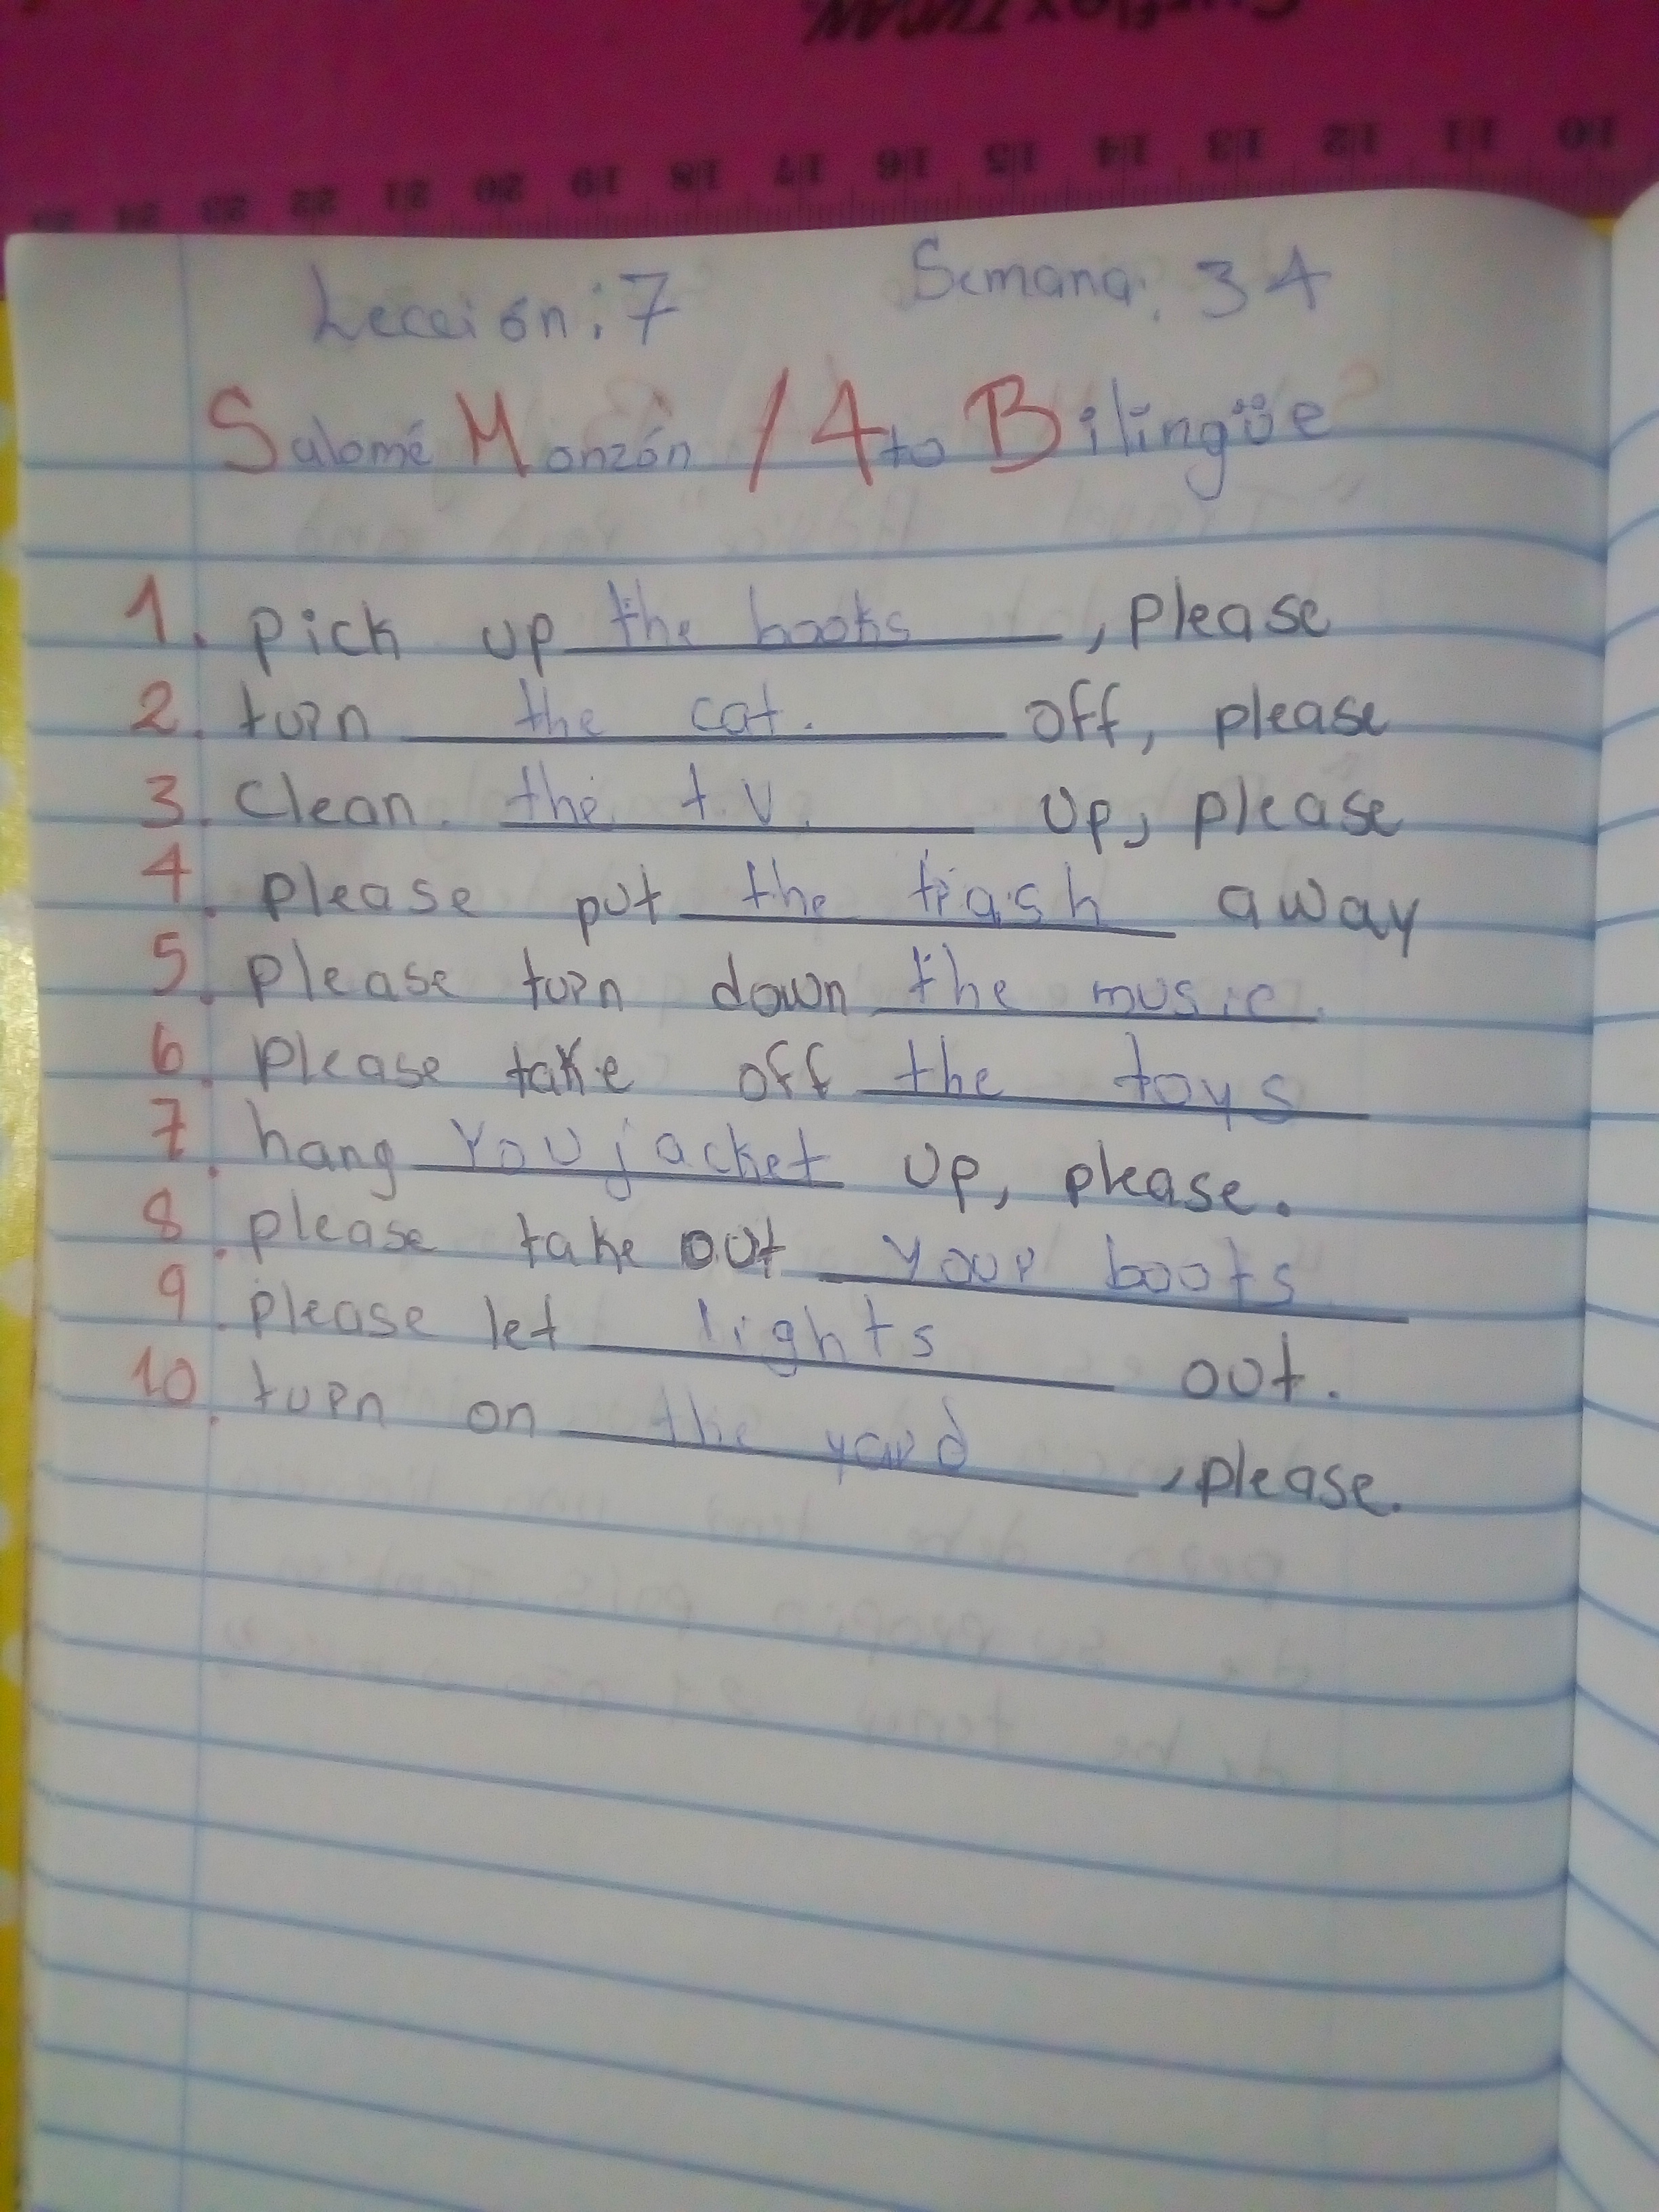 10 11 12 13 14 15 16 17 18 19 20 21 22 23 24
Lección: 7 Semana: 34
Salomé Monzón / 4to Bilingüe
1. pick up the books, please
2. turn the cat. off, please
3. Clean. the t.v. up, please
4. please put the trash away
5. please turn down the music.
6. please take off the toys
7. hang You jacket up, please.
8. please take out your boots
9. please let lights out.
10. turn on the yard, please.